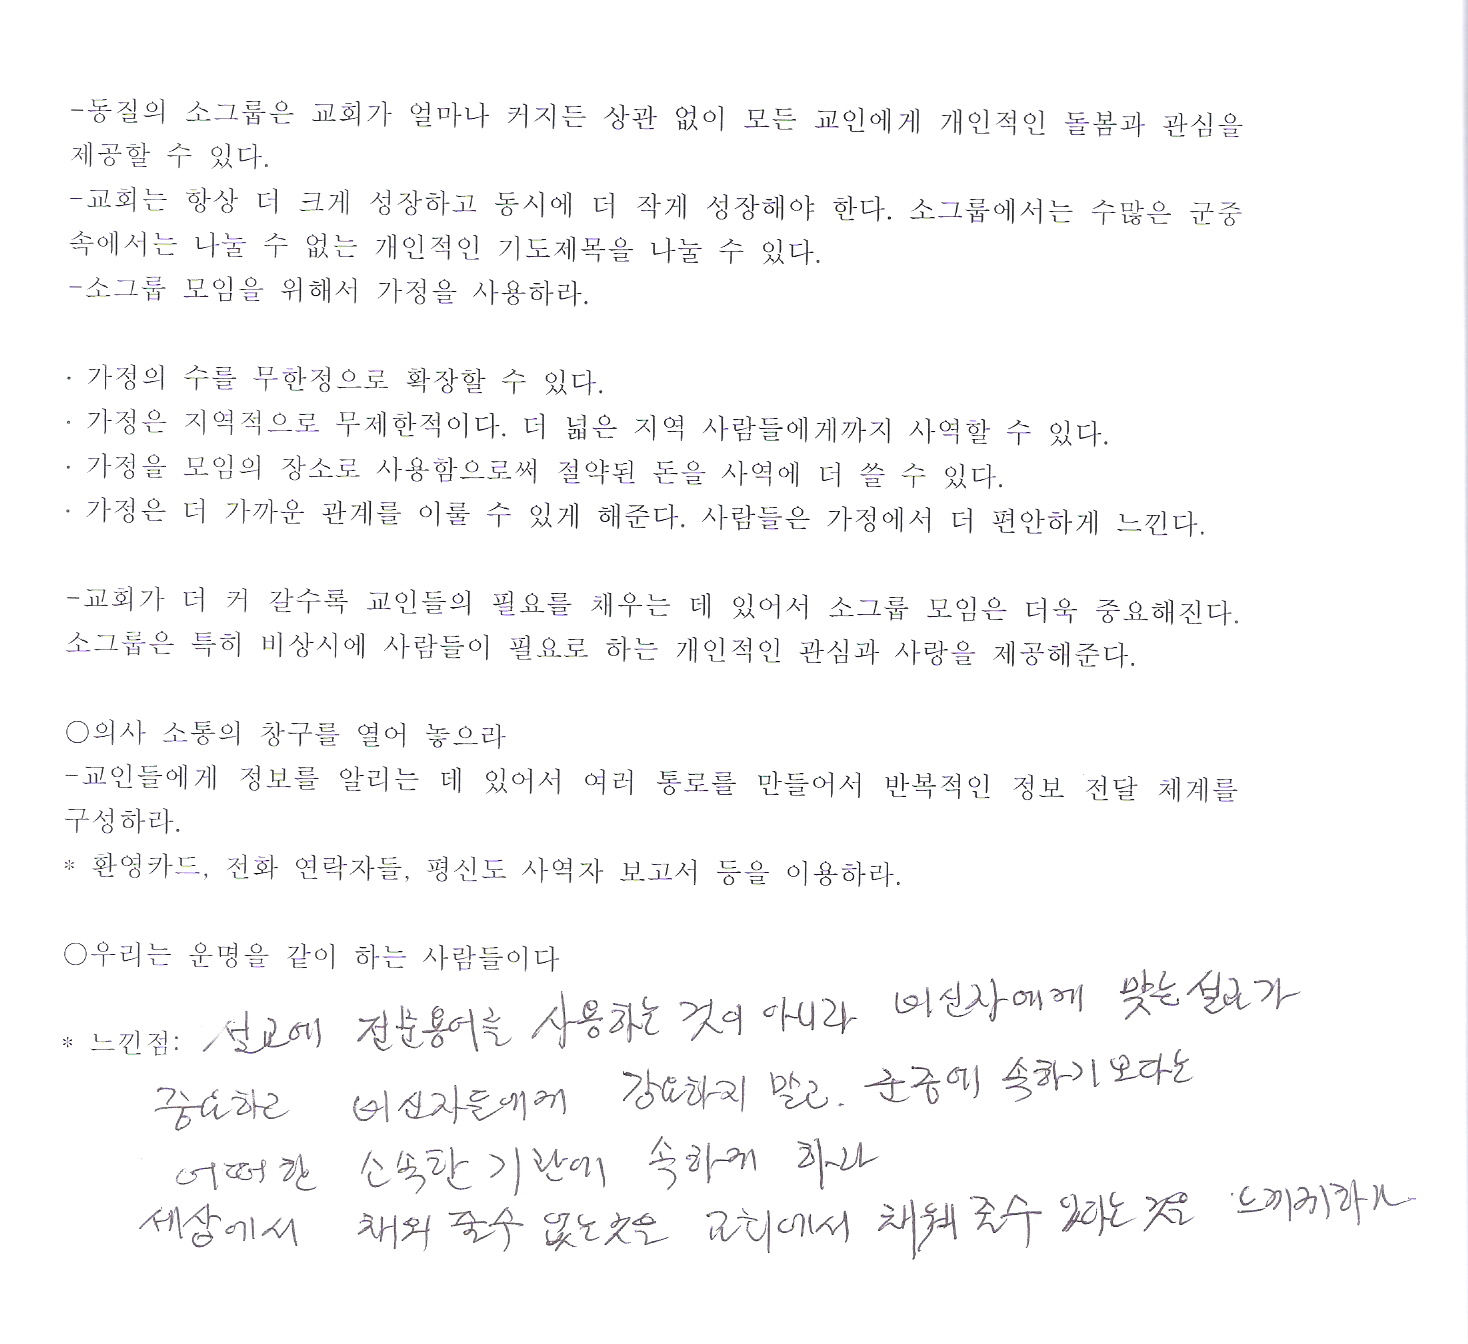 -동질의 소그룹은 교회가 얼마나 커지든 상관 없이 모든 교인에게 개인적인 돌봄과 관심을
제공할 수 있다.
-교회는 항상 더 크게 성장하고 동시에 더 작게 성장해야 한다. 소그룹에서는 수많은 군중
속에서는 나눌 수 없는 개인적인 기도제목을 나눌 수 있다.
-소그룹 모임을 위해서 가정을 사용하라.
· 가정의 수를 무한정으로 확장할 수 있다.
· 가정은 지역적으로 무제한적이다. 더 넓은 지역 사람들에게까지 사역할 수 있다.
· 가정을 모임의 장소로 사용함으로써 절약된 돈을 사역에 더 쓸 수 있다.
· 가정은 더 가까운 관계를 이룰 수 있게 해준다. 사람들은 가정에서 더 편안하게 느낀다.
-교회가 더 커 갈수록 교인들의 필요를 채우는 데 있어서 소그룹 모임은 더욱 중요해진다.
소그룹은 특히 비상시에 사람들이 필요로 하는 개인적인 관심과 사랑을 제공해준다.
○의사 소통의 창구를 열어 놓으라
-교인들에게 정보를 알리는 데 있어서 여러 통로를 만들어서 반복적인 정보 전달 체계를
구성하라.
* 환영카드, 전화 연락자들, 평신도 사역자 보고서 등을 이용하라.
○우리는 운명을 같이 하는 사람들이다
* 느낀점: 설교에 전문용어를 사용하는 것이 아니라 비신자에게 맞는 설교가
중요하고 비신자들에게 강요하지 말고. 군중에 속하기보다는
어떠한 소속된 기관에 속하게 하라
세상에서 채워 줄수 없는것을 교회에서 채워 줄수 있다는 것을 느끼게하라